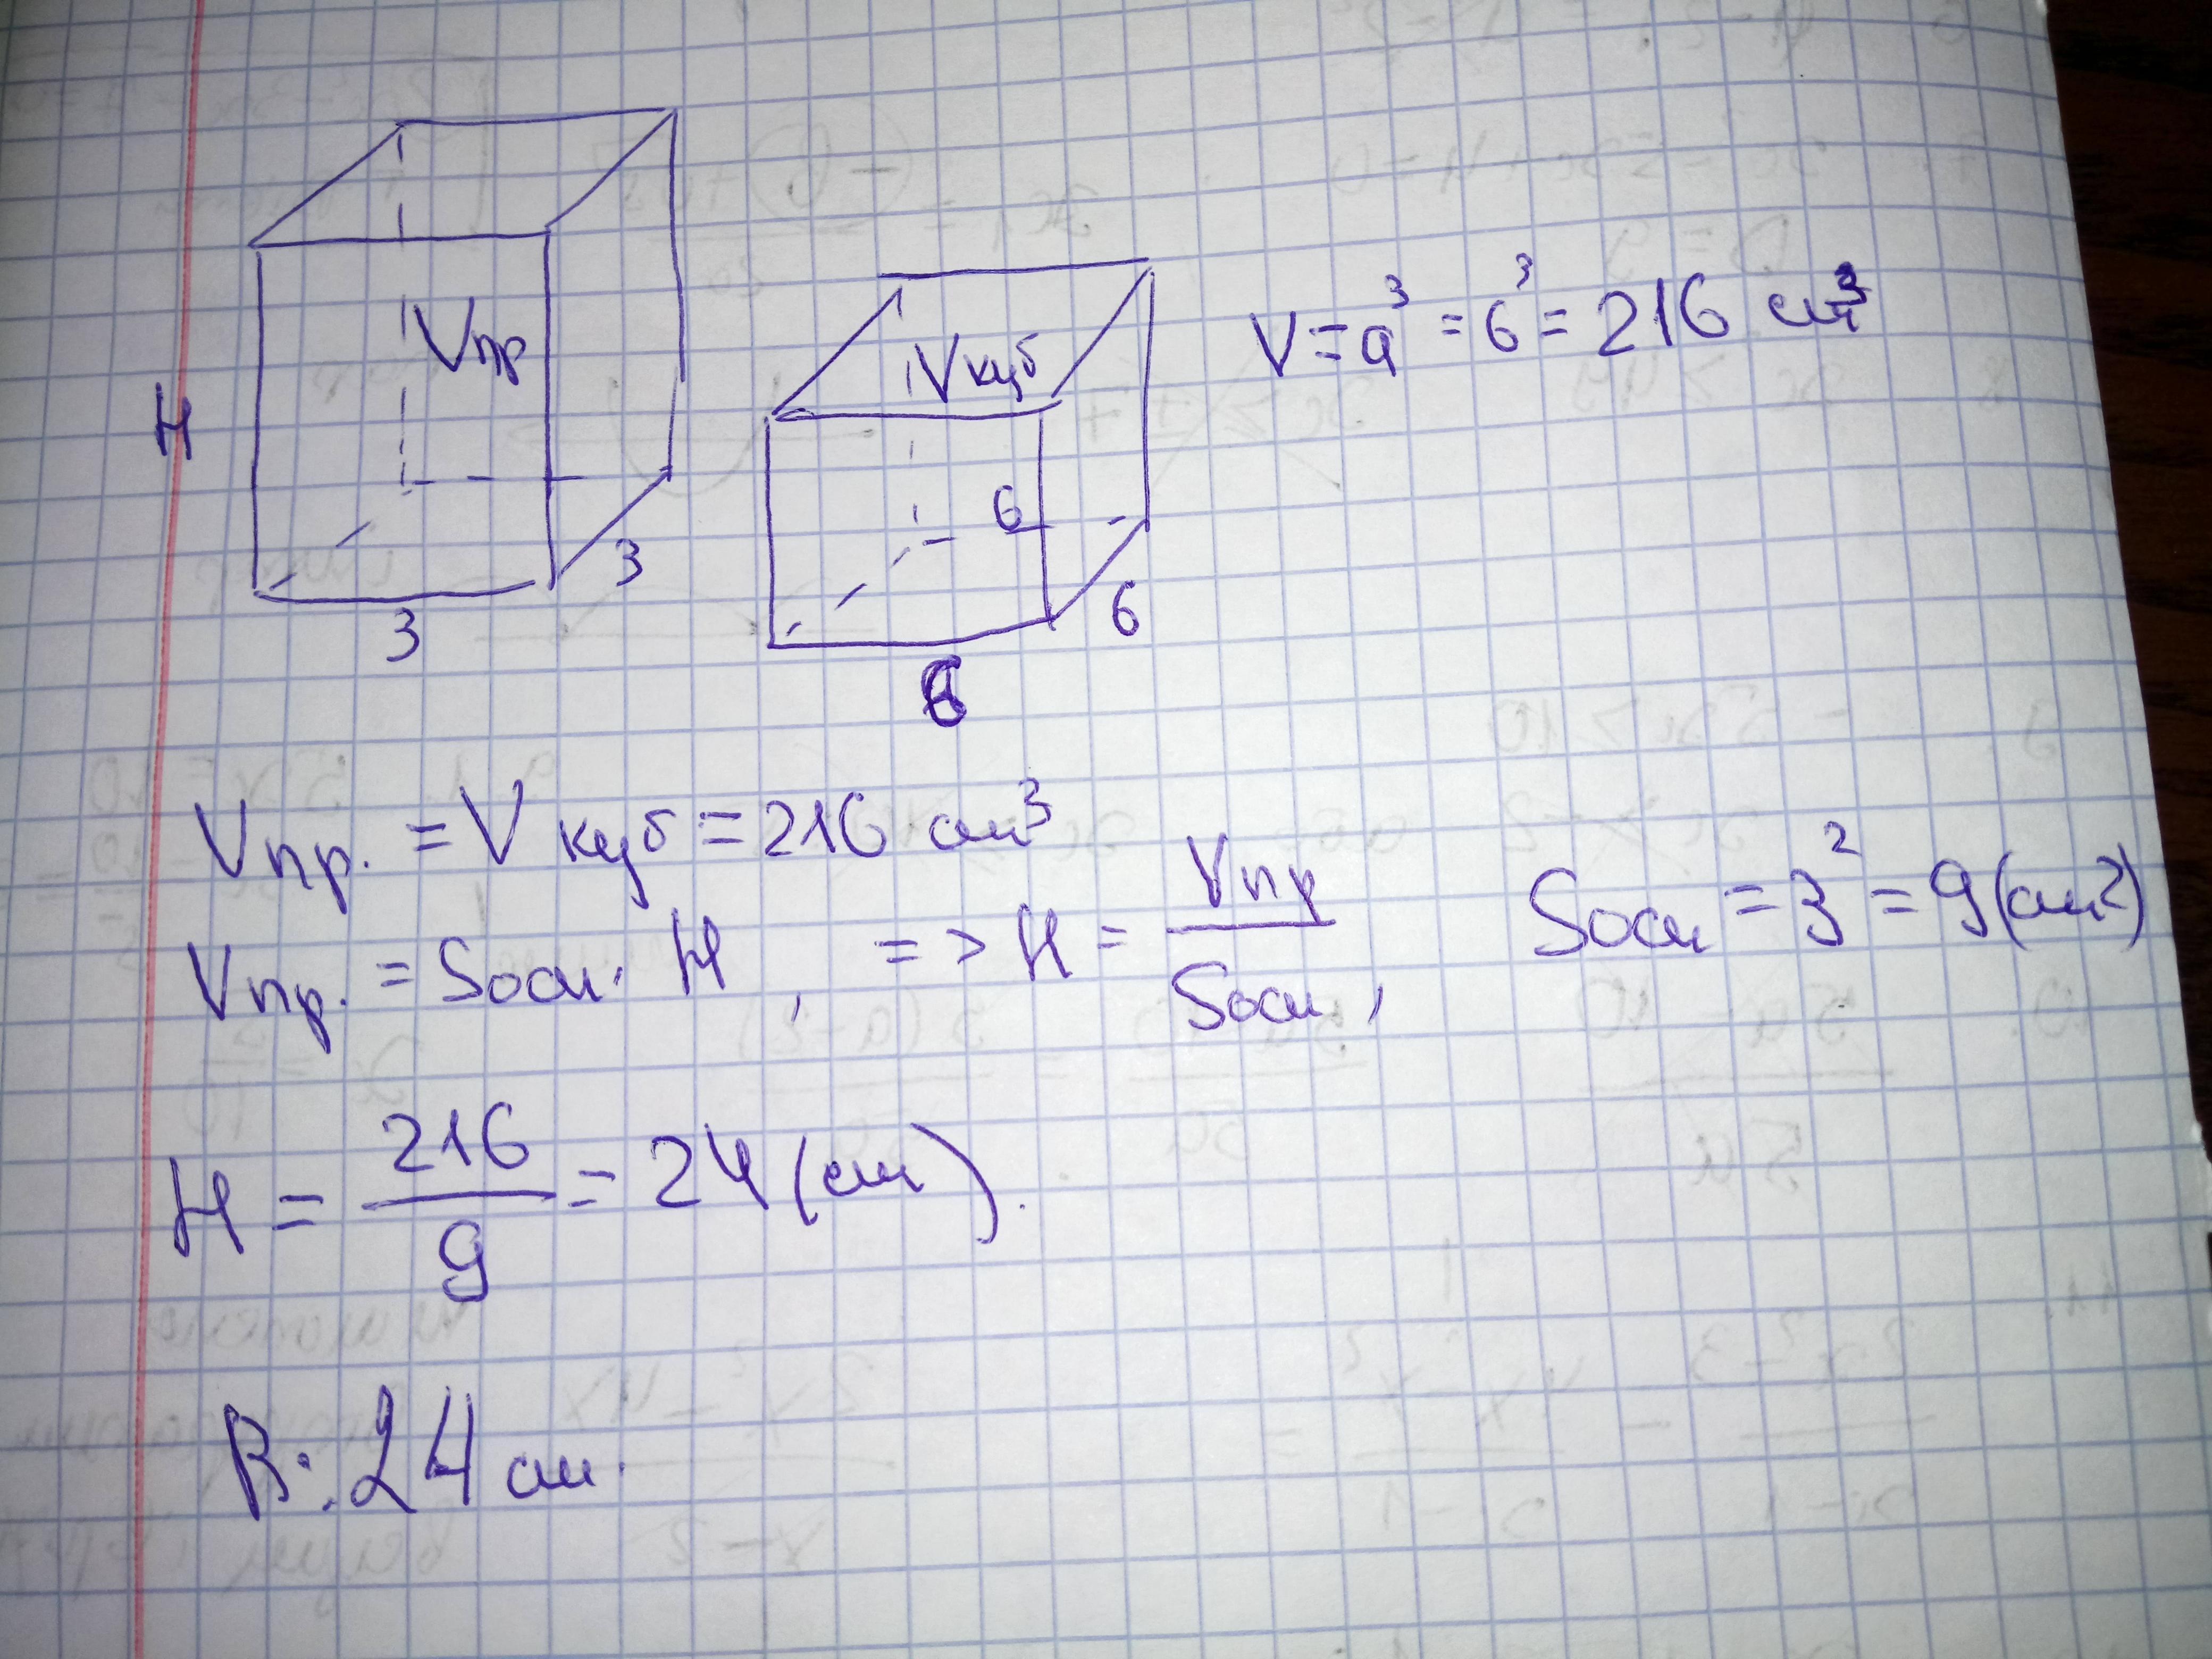 H
Vпр
3
3
Vкуб
6
6
6
V = a³ = 6³ = 216 см³
Vпр. = Vкуб = 216 см³
Vпр. = Sосн. H, => H = Vпр / Sосн, Sосн = 3² = 9 (см²)
H = 216 / 9 = 24 (см).
В: 24 см.